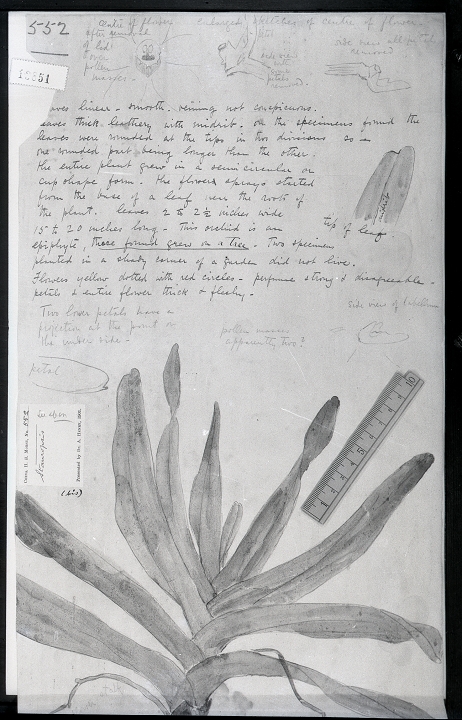 552
centre of flower
after removal
of lid
over
pollen
masses.
enlarged sketches of centre of flower.
side view
with
petals
removed.
side view all petals
removed
10551
leaves linear - smooth. veining not conspicuous.
leaves thick leathery with midrib. all the specimens found the
leaves were rounded at the tips in two divisions
one rounded part being longer than the other.
The entire plant grew in a semi circular or
cup shape form. The flower sprays started
from the base of a leaf near the root of
the plant. leaves 2 to 2½ inches wide
15 to 20 inches long. This orchid is an
epiphyte, those found grew on a tree. Two specimens
planted in a shady corner of a garden did not live.
Flowers yellow dotted with red circles - perfume strong & disagreeable -
petals & entire flower thick & fleshy -
midrib
tip of leaf
Two lower petals have a
projection at the point on
the under side -
pollen masses
apparently two?
side view of labellum
petal
552
(bis)
stalk